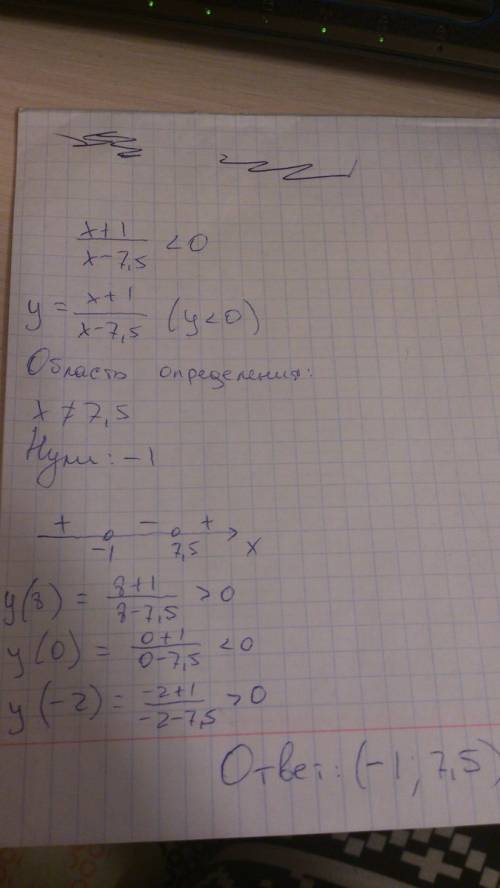 x+1
x-7,5 <0
y = x+1 / x-7,5 (y<0)
Область определения:
x ≠ 7,5
Нули: -1
+ - +
-1 7,5 x
y(8) = 8+1 / 8-7,5 >0
y(0) = 0+1 / 0-7,5 <0
y(-2) = -2+1 / -2-7,5 >0
Ответ: (-1; 7,5)